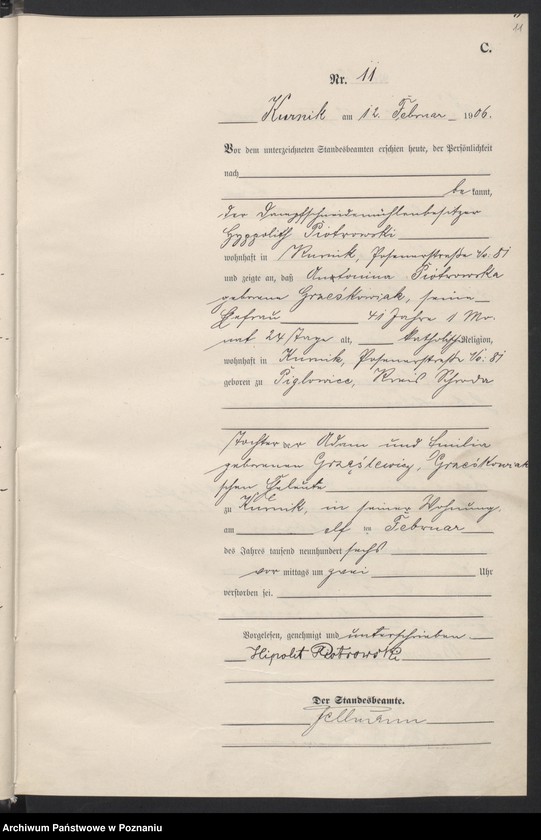 11
C.
Nr. 11
Kurnik am 12. Februar 1906.
Vor dem unterzeichneten Standesbeamten erschien heute, der Persönlichkeit
nach
be kannt,
der Dampfschneidemühlenbesitzer
Hyppolith Piotrowski
wohnhaft in Kurnik, Posenerstraße No. 81
und zeigte an, daß Antonina Piotrowska
geborene Grześkowiak, seine
Ehefrau 41 Jahre 1 Mo-
nat 24 Tage alt, katholischer Religion,
wohnhaft in Kurnik, Posenerstraße No. 81
geboren zu Piglowice, Kreis Schroda
Tochter der Adam und Emilia
geborenen
schen Eheleute
zu Kurnik, in seiner Wohnung
am elf ten Februar
des Jahres tausend neunhundert sechs
vor mittags um zwei Uhr
verstorben sei.
Vorgelesen, genehmigt und unterschrieben
Hipolit Piotrowski
Der Standesbeamte.
Archiwum Państwowe w Poznaniu